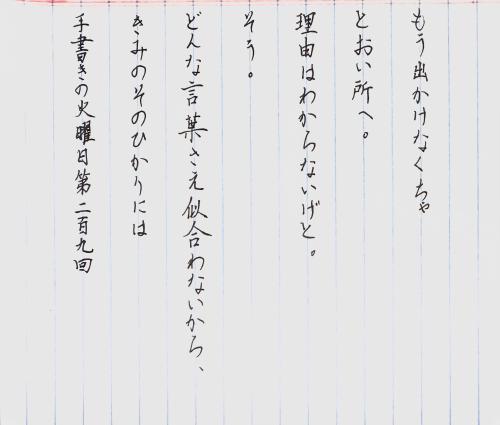 もう出かけなくちゃ
とおい所へ。
理由はわからないけど。
そう。
どんな言葉さえ似合わないから、
きみのそのひかりには
手書きの火曜日第二百九回